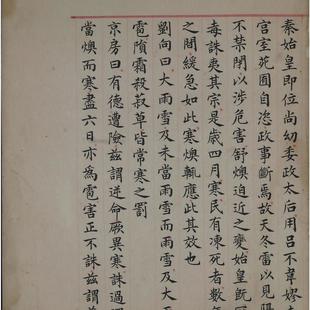 秦始皇即位尚幼委政太后用呂不韋嫪
宮室苑囿自恣政事斷焉故天冬雷以見陽
不禁閉以涉危害舒燠迫近之變始皇既冠
毒誅夷其宗是歲四月寒民有凍死者數年
之間緩急如此寒燠輒應此其效也
劉向曰大雨雪及未當雨雪而雨雪及大
雹隕霜殺菽草皆常寒之罰
京房曰有德遭險茲謂逆命厥異寒誅過
當燠而寒盡六日亦為雹害正不誅茲謂